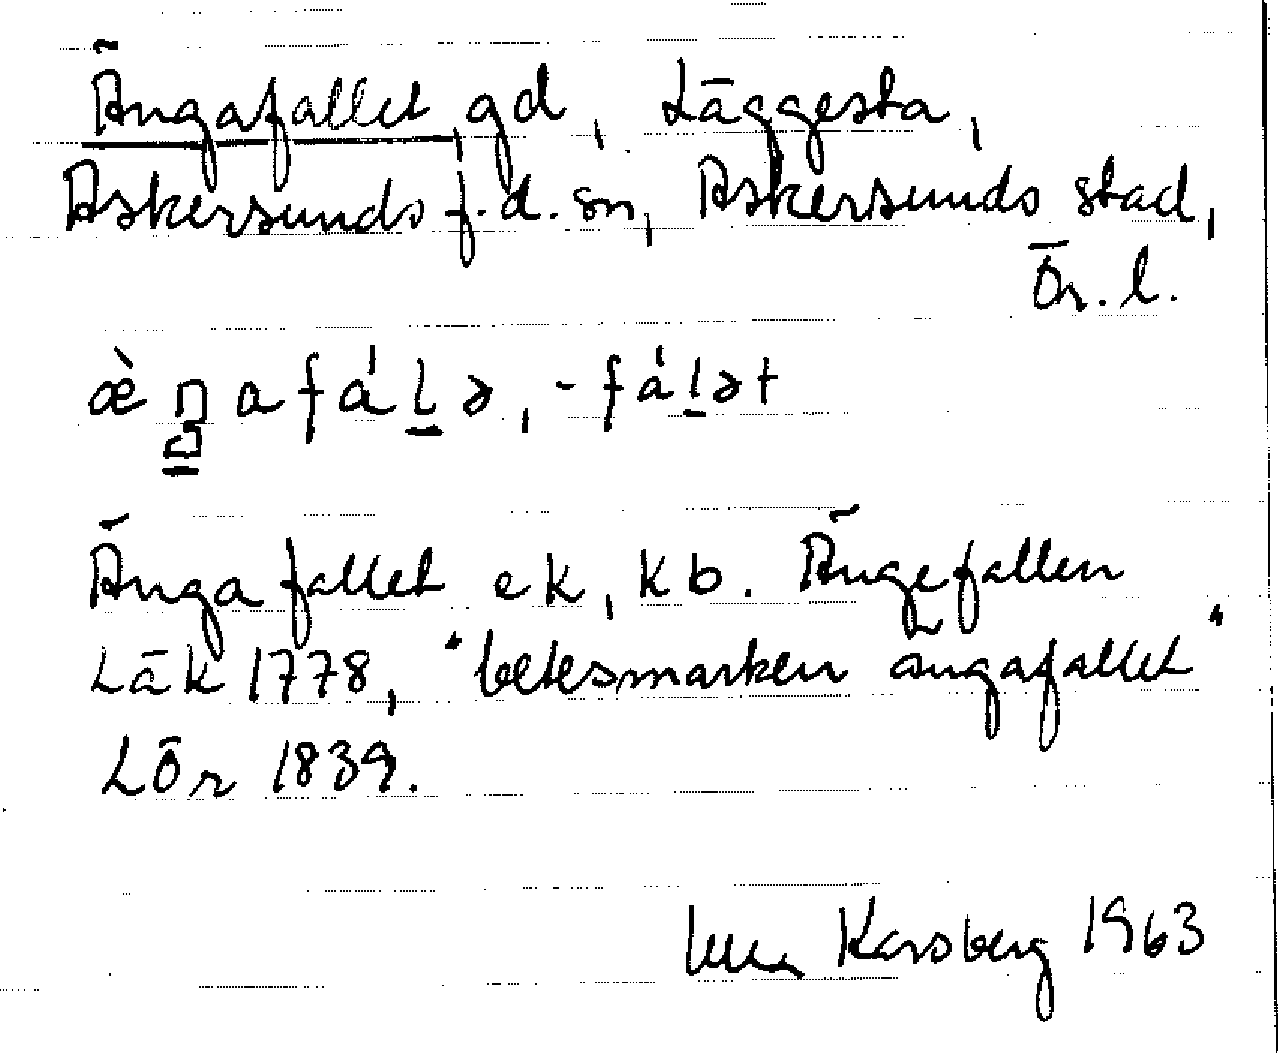 Ängafallet gd, Läggesta,
Askersunds f.d. sn, Askersunds stad,
Ör. l.
æ̀ŋ̲afáḻə, -fáḻət
Änga fallet ek, kb. Ängefallen
LäK 1778, "betesmarken ängafallet"
LÖr 1839.
Karsberg 1963